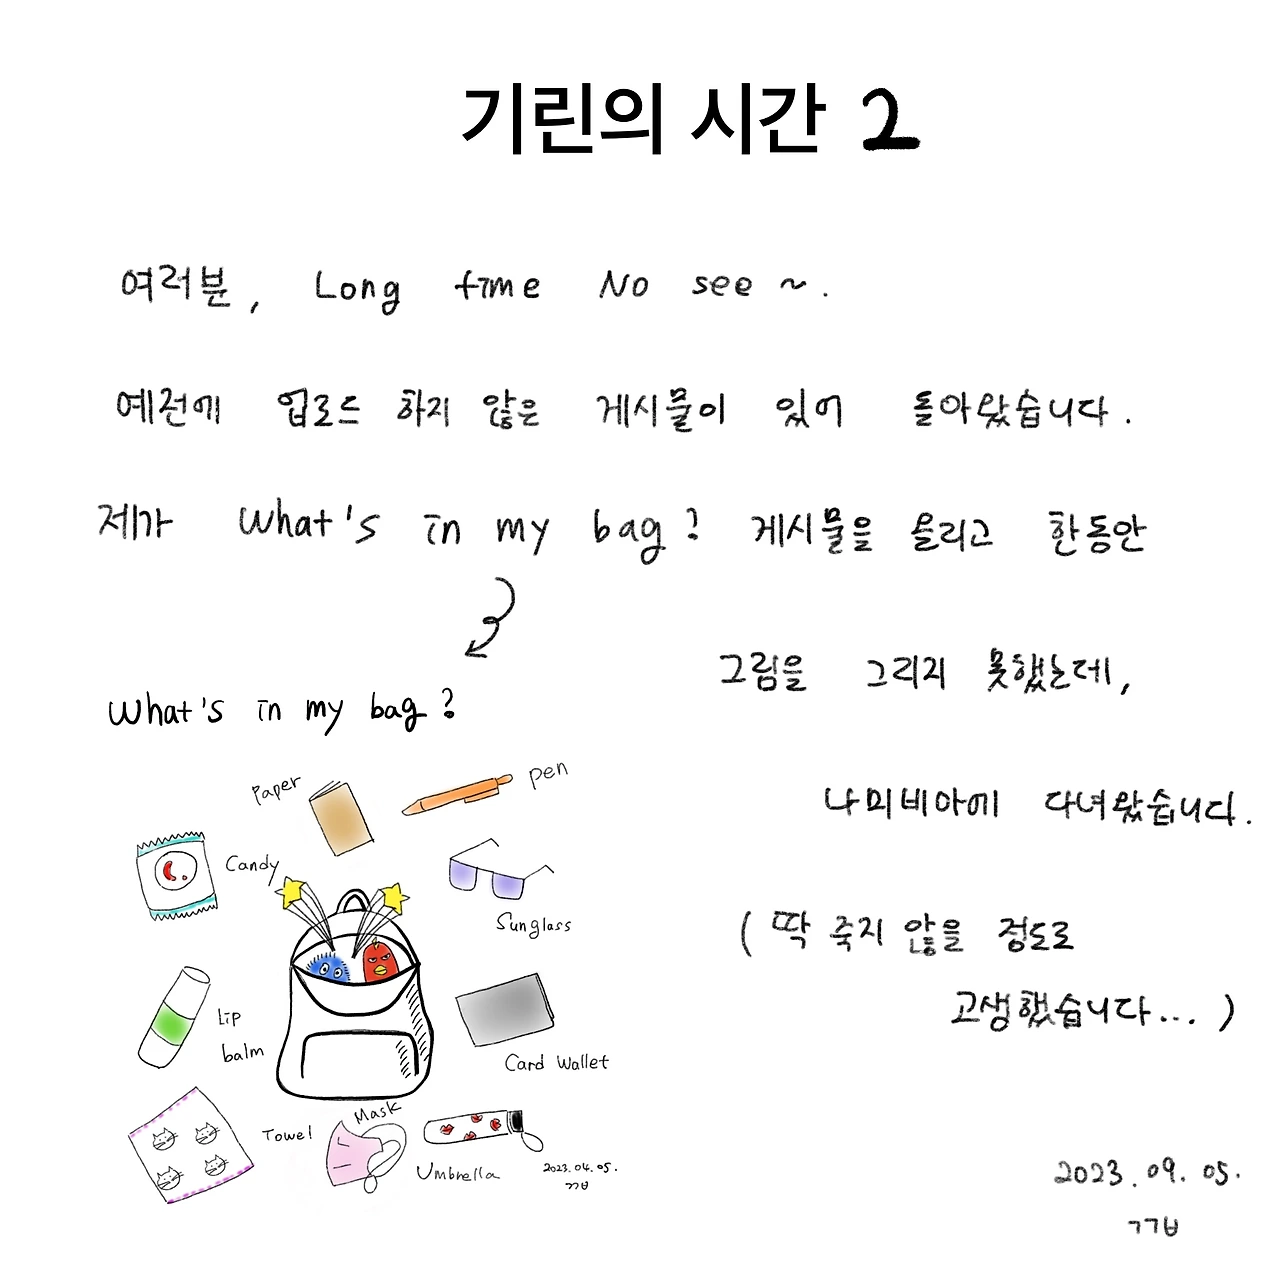 기린의 시간 2
여러분, Long time No see ~.
예전에 업로드 하지 않은 게시물이 있어 돌아왔습니다.
제가 What's in my bag? 게시물을 올리고 한동안
그림을 그리지 못했는데,
나미비아에 다녀왔습니다.
(딱 죽지 않을 정도로
고생했습니다... )
What's in my bag?
Paper
pen
Candy
Sunglass
Lip
balm
Card Wallet
Towel
Mask
Umbrella
2023.04.05.
ㄱㄱㅂ
2023.09.05.
ㄱㄱㅂ